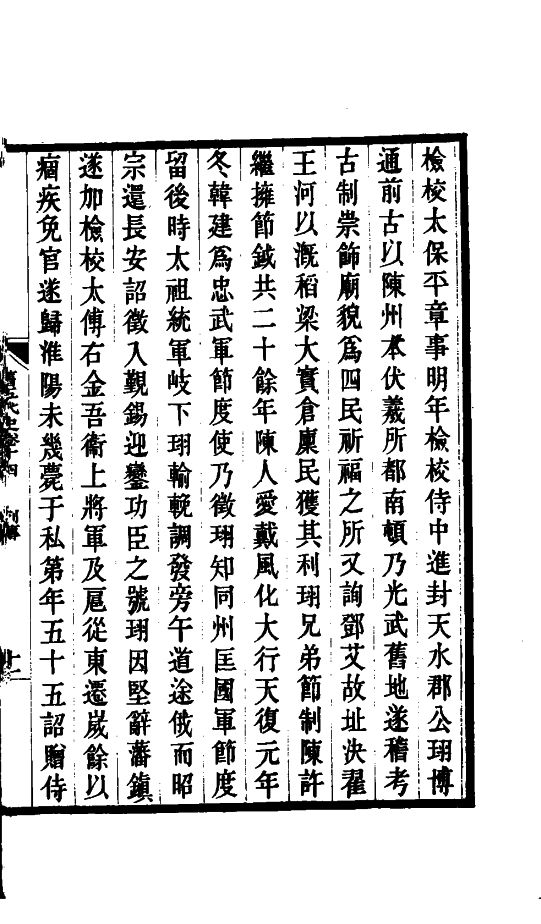 檢校太保平章事明年檢校侍中進封天水郡公珝博
通前古以陳州本伏羲所都南頓乃光武舊地遂稽考
古制崇飾廟貌爲四民祈福之所又詢鄧艾故址決翟
王河以漑稻梁大實倉廩民獲其利珝兄弟節制陳許
繼擁節鉞共二十餘年陳人愛戴風化大行天復元年
冬韓建爲忠武軍節度使乃徵珝知同州匡國軍節度
留後時太祖統軍岐下珝輸輓調發旁午道途俄而昭
宗還長安詔徵入覲錫迎鑾功臣之號珝因堅辭藩鎮
遂加檢校太傅右金吾衞上將軍及扈從東遷歲餘以
痼疾免官遂歸淮陽未幾薨于私第年五十五詔贈侍
舊五代史卷十四 列傳 十一